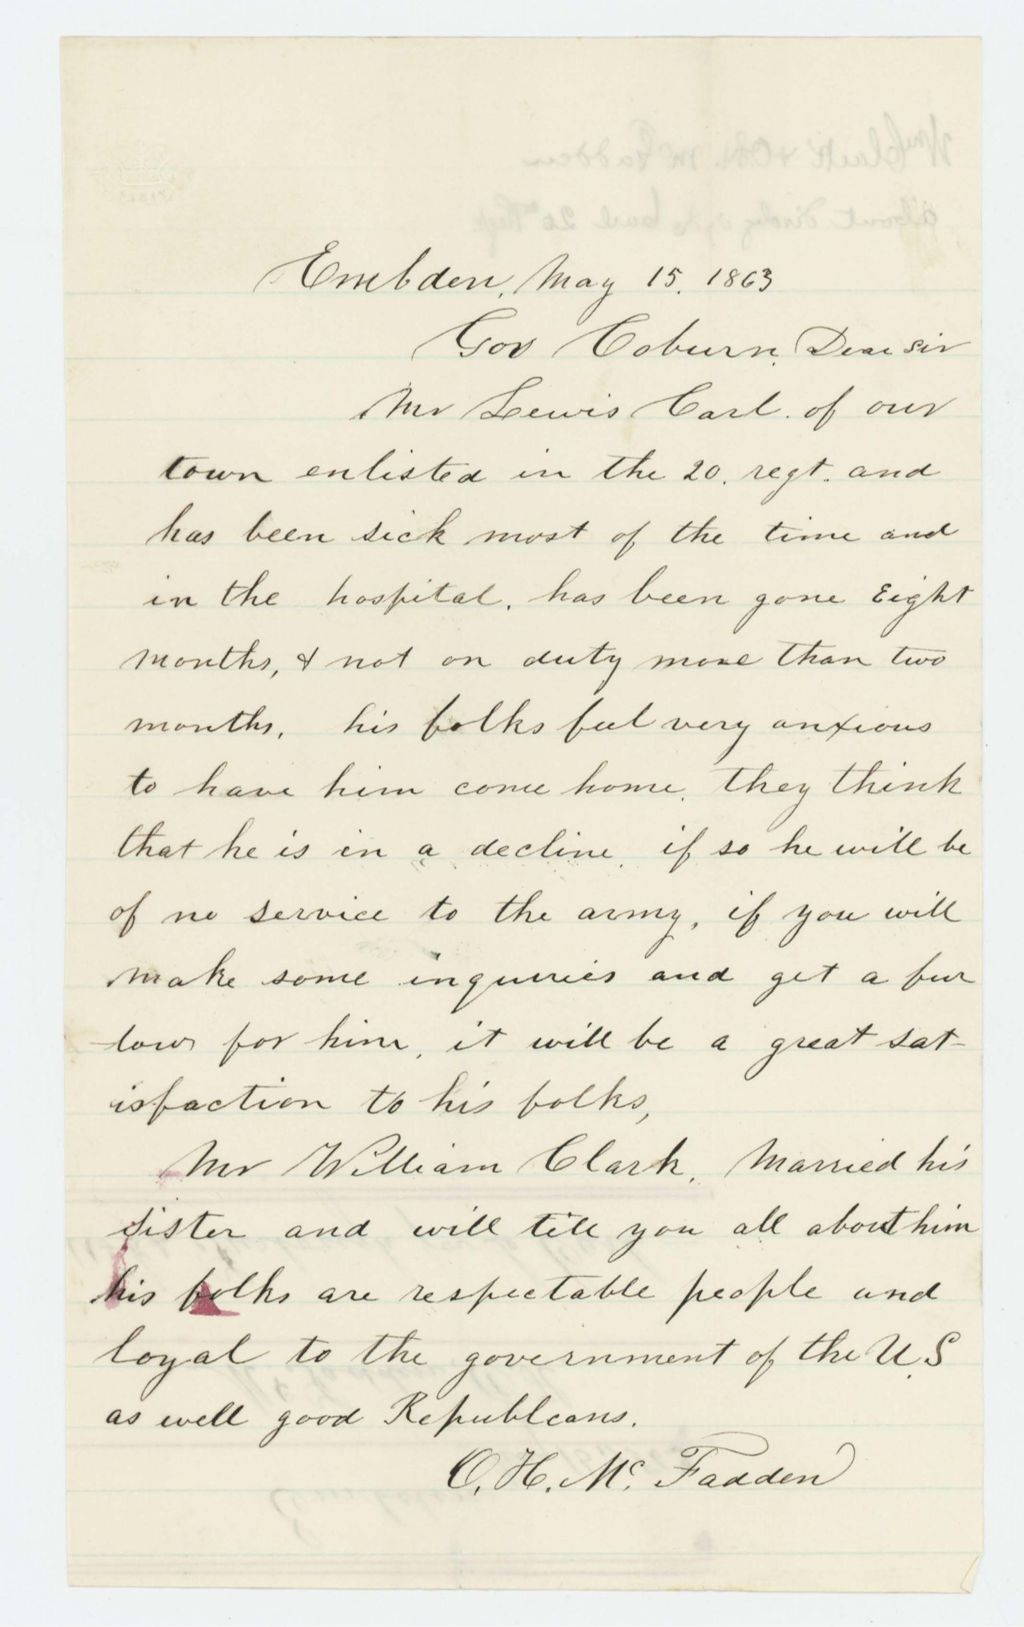 Embden, May 15. 1863
Gov Coburn, Dear sir
Mr Lewis Carl. of our
town enlisted in the 20. regt. and
has been sick most of the time and
in the hospital. has been gone Eight
months, & not on duty more than two
months. his folks feel very anxious
to have him come home. they think
that he is in a decline. if so he will be
of no service to the army, if you will
make some inquiries and get a fur
low for him, it will be a great sat-
isfaction to his folks,
Mr William Clark, Married his
sister and will tell you all about him
his folks are respectable people and
loyal to the government of the U.S
as well good Republcans.
O. H. Mc. Fadden